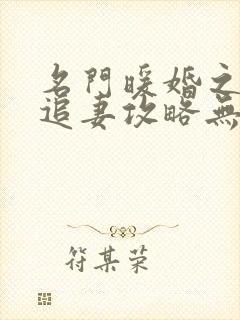 名門暖婚之
追妻攻略無
符某榮